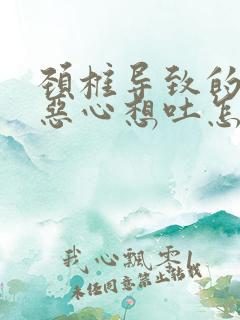 颈椎导致的
恶心想吐怎
我心飘零
未经同意禁止转载